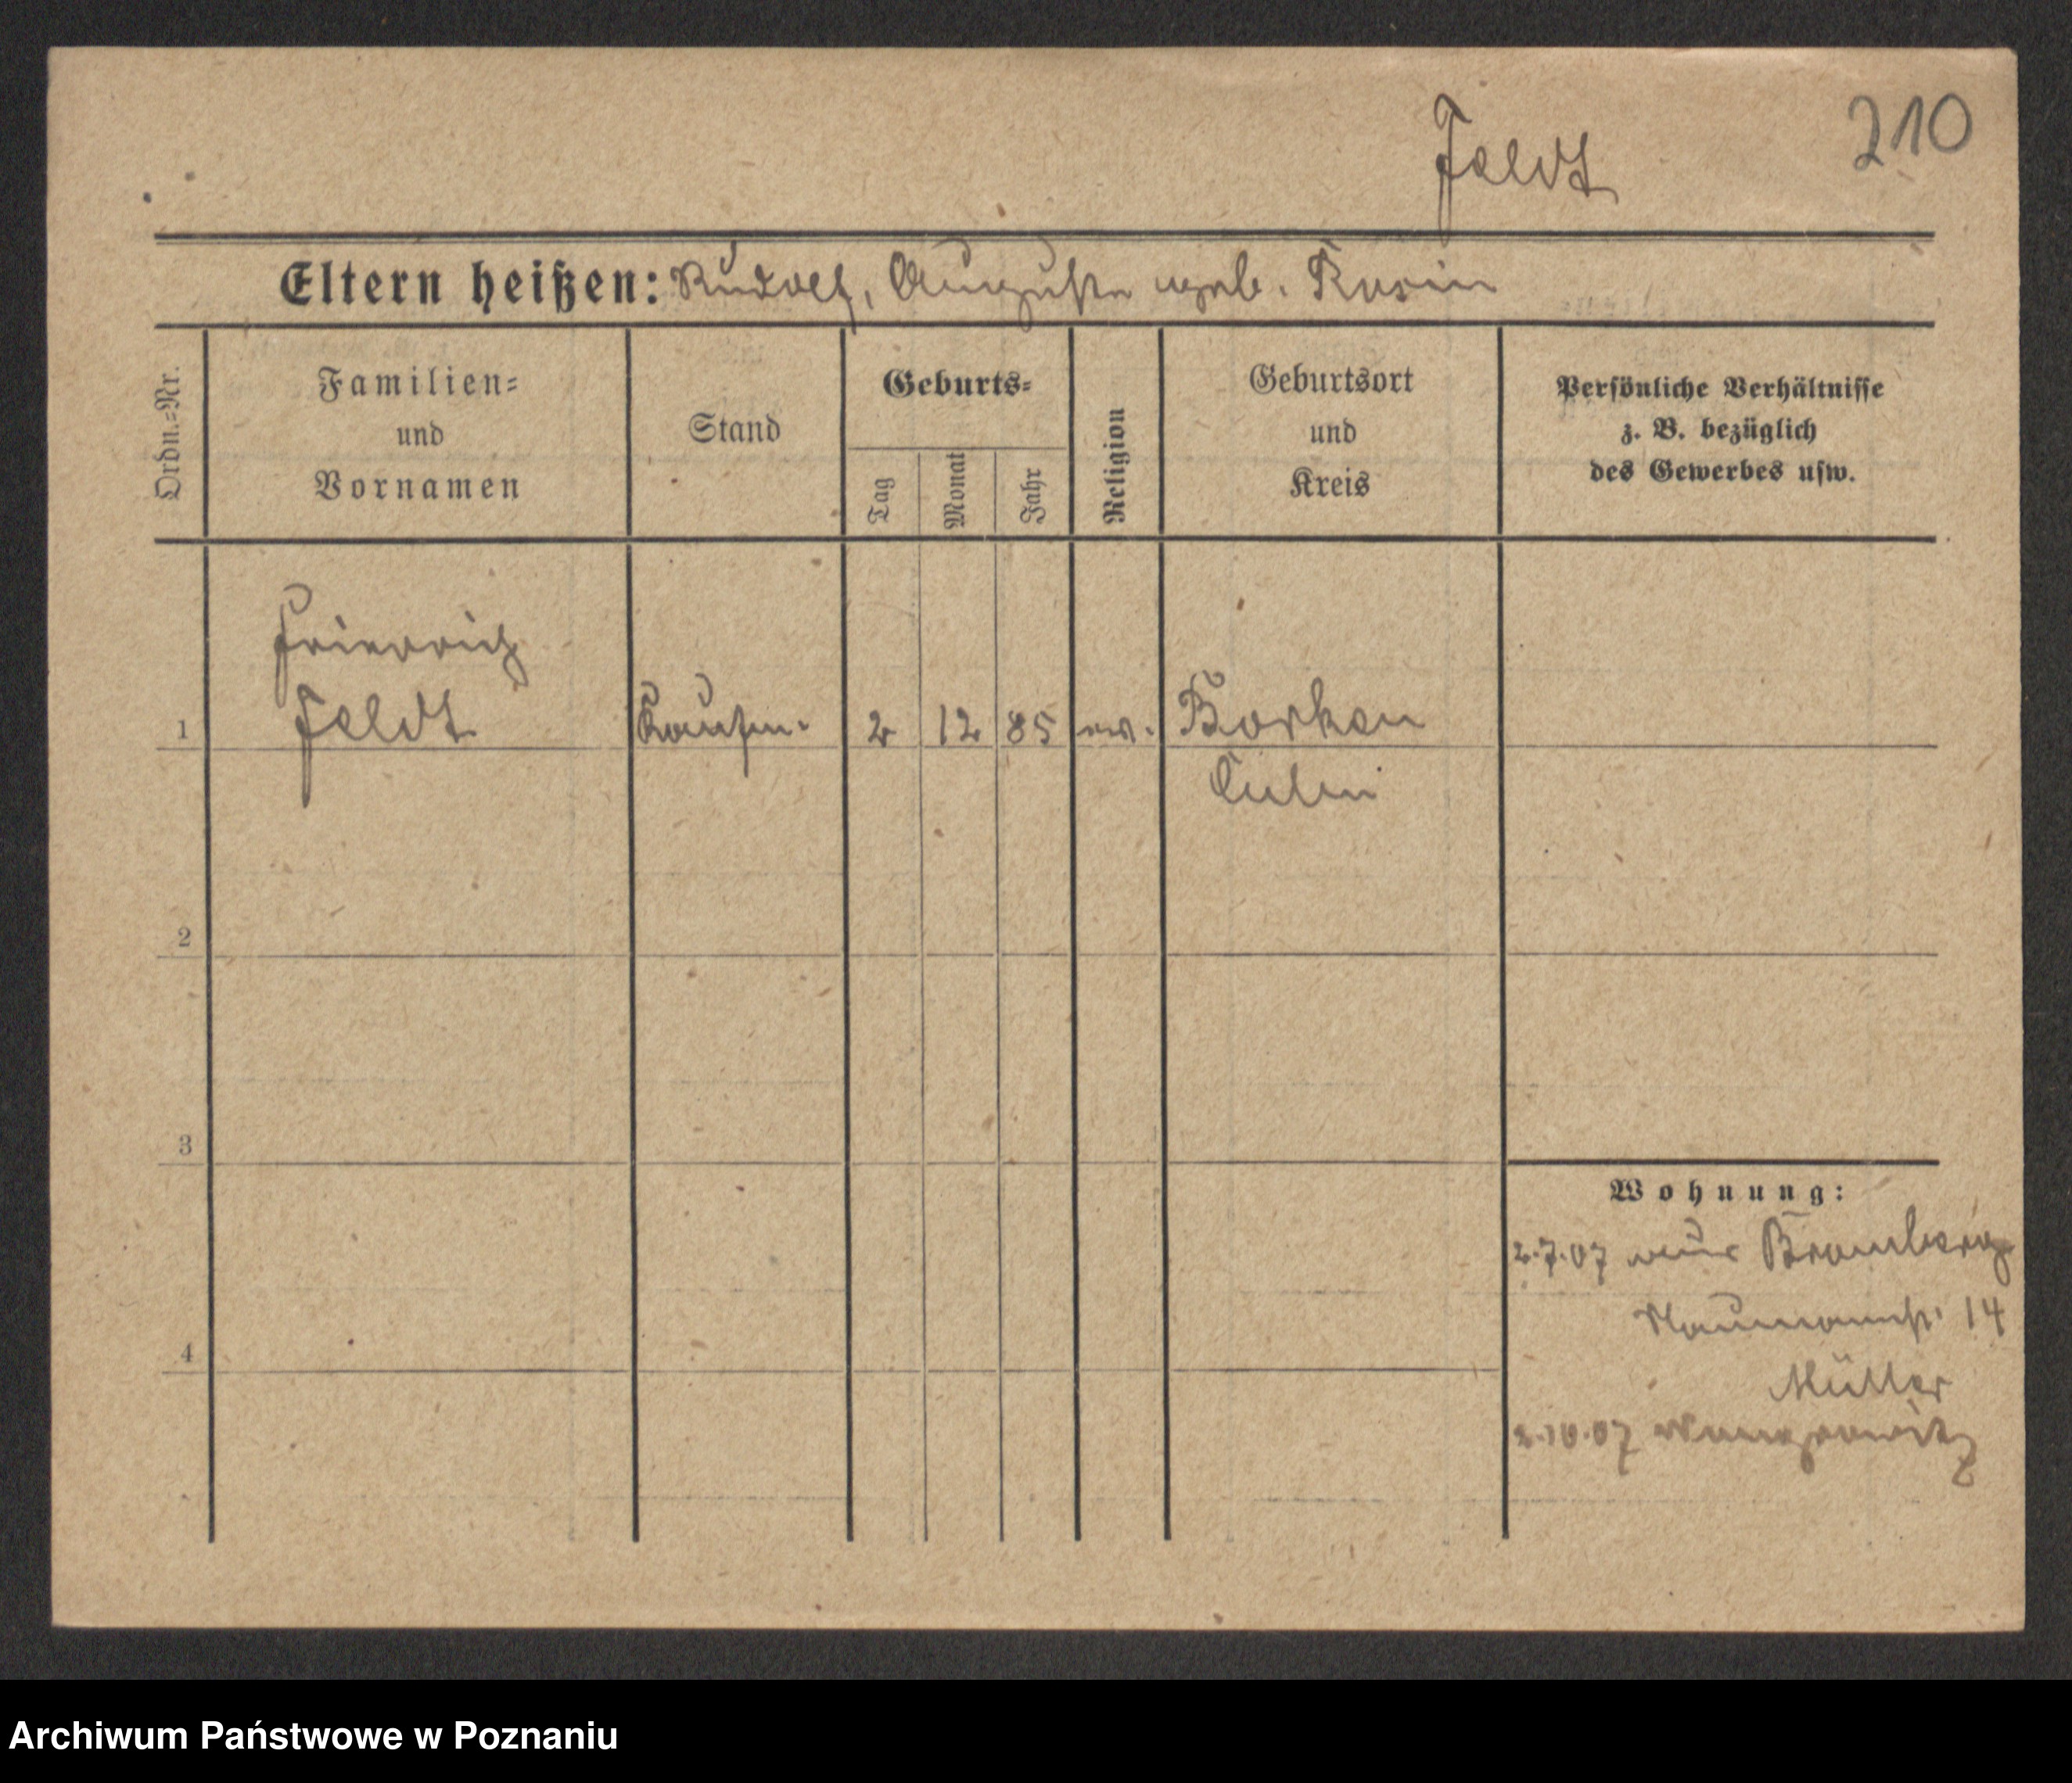 210
Feldt
Eltern heißen: Rudolf, Auguste geb. Rosin
Ordn.-Nr.
Familien-
und
Vornamen
Stand
Geburts-
Tag
Monat
Jahr
Religion
Geburtsort
und
Kreis
Persönliche Verhältnisse
z. B. bezüglich
des Gewerbes usw.
Friedrich
1 Feldt Kaufm. 2 12 85 ev. Borken
Culm
2
3
4
Wohnung:
2.7.07 aus Bromberg
Naumannstr. 14
Müller
2.10.07 Wongrowitz
Archiwum Państwowe w Poznaniu